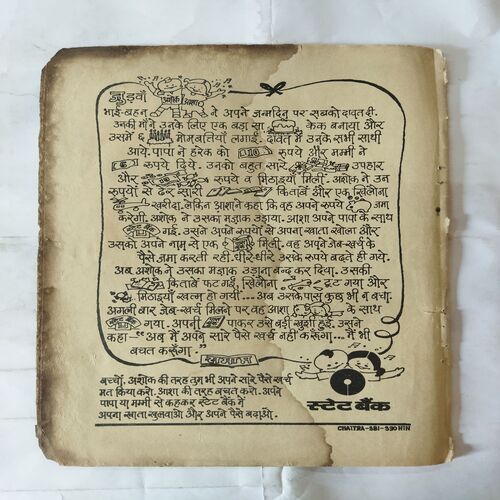 जुड़वाँ अशोक आशा
भाई-बहन ने अपने जन्मदिन पर सबको दावत दी.
उनकी माँ ने उनके लिए एक बड़ा सा केक बनाया और
उसमें ६ मोमबत्तियाँ लगाईं. दावत में उनके सभी साथी
आये. पापा ने हरेक को रुपये और मम्मी ने
रुपये दिये. उनको बहुत सारे उपहार
और रुपये व मिठाइयाँ मिलीं. अशोक ने उन
रुपयों से ढेर सारी किताबें और एक खिलौना
खरीदा. लेकिन आशाने कहा कि वह अपने रुपये जमा
करेगी. अशोक ने उसका मज़ाक उड़ाया. आशा अपने पापा के साथ
गई. उसने अपने रुपयों से अपना खाता खोला और
उसको अपने नाम से एक मिली. वह अपने जेब-खर्च के
पैसे जमा करती रही. धीरे धीरे उसके रुपये बढ़ते ही गये.
अब अशोक ने उसका मज़ाक उड़ाना बन्द कर दिया. उसकी
किताबें फट गईं, खिलौना टूट गया और
मिठाइयाँ खत्म हो गयीं... अब उसके पास कुछ भी न बचा.
अगली बार जेब-खर्च मिलने पर वह आशा के साथ
गया. अपनी पाकर उसे बड़ी खुशी हुई. उसने
कहा-"अब मैं अपने सारे पैसे खर्च नहीं करूँगा... मैं भी
बचत करूँगा."
बच्चों, अशोक की तरह तुम भी अपने सारे पैसे खर्च
मत किया करो. आशा की तरह बचत करो. अपने
पापा या मम्मी से कहकर स्टेट बैंक में
अपना खाता खुलवाओ और अपने पैसे बढ़ाओ.
स्टेट बैंक
CHAITRA-SBI-390 HIN